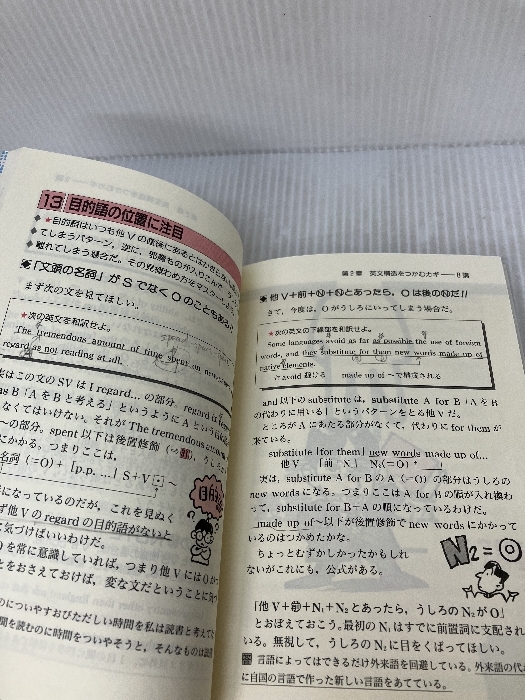 13 目的語の位置に注目
★目的語はいつも他 V の直後にあるとはかぎらない
てしまうパターン，逆に，邪魔ものが入りこんで
離れてしまう場合だ。その見極めめ方をマスターしよう
「文頭の名詞」が S でなく O のこともある
まず次の文を見てほしい。
★次の英文を和訳せよ。
The tremendous amount of time spent on
regard as not reading at all.
実はこの文の SV は I regard... の部分。regard
as B「A を B と考える」というように A という
なくてはいけない。それが The tremendous
〜の部分。spent 以下は後置修飾
にかかる。つまりここは，
名詞 (=O) + [p.p. ...] S+V 〜
になっているのだが，これを見ぬく
ず他 V の regard の目的語がないと
に気づけばいいわけだ。
を常に意識していれば，つまり他 V には O が
とをおさえておけば，変な文だということに
目的
のについやすおびただしい時間を私は読書と考えて
間を読むのに時間をついやそうと，そんなものは読書
第2章 英文構造をつかむカギ——8講
他 V+前+N+Nとあったら，O は後のNだ!!
さて，今度は，O がうしろにいってしまう場合だ。
★次の英文の下線部を和訳せよ。
Some languages avoid as far as possible the use of foreign
words, and they substitute for them new words made up of
native elements.
注 avoid 避ける made up of 〜で構成される
and 以下の substitute は，substitute A for B「A を B
の代わりに用いる」というパターンをとる他 V だ。
ところが A にあたる部分がなくて，代わりに for them が
来ている。
substitute [for them] new words made up of...
他 V 「前 N」 N₂(=O)
実は，substitute A for B の A (=O) の部分はうしろの
new words になる。つまりここは A for B の順が入れ換わ
って，substitute for B+A の順になっているわけだ。
made up of〜以下が後置修飾で new words にかかって
いるのはつかめたかな。
ちょっとむずかしかったかもしれ
ないがこれにも，公式がある。
N₂=O
「他 V+前+N₁+N₂ とあったら，うしろの N₂ が O」
とおぼえておこう。最初の N₁ はすでに前置詞に支配され
いる。無視して，うしろの N₂ に目をくばってほしい。
言語によってはできるだけ外来語を回避している。外来語の代わ
に自国の言語で作った新しい言語をあてている。